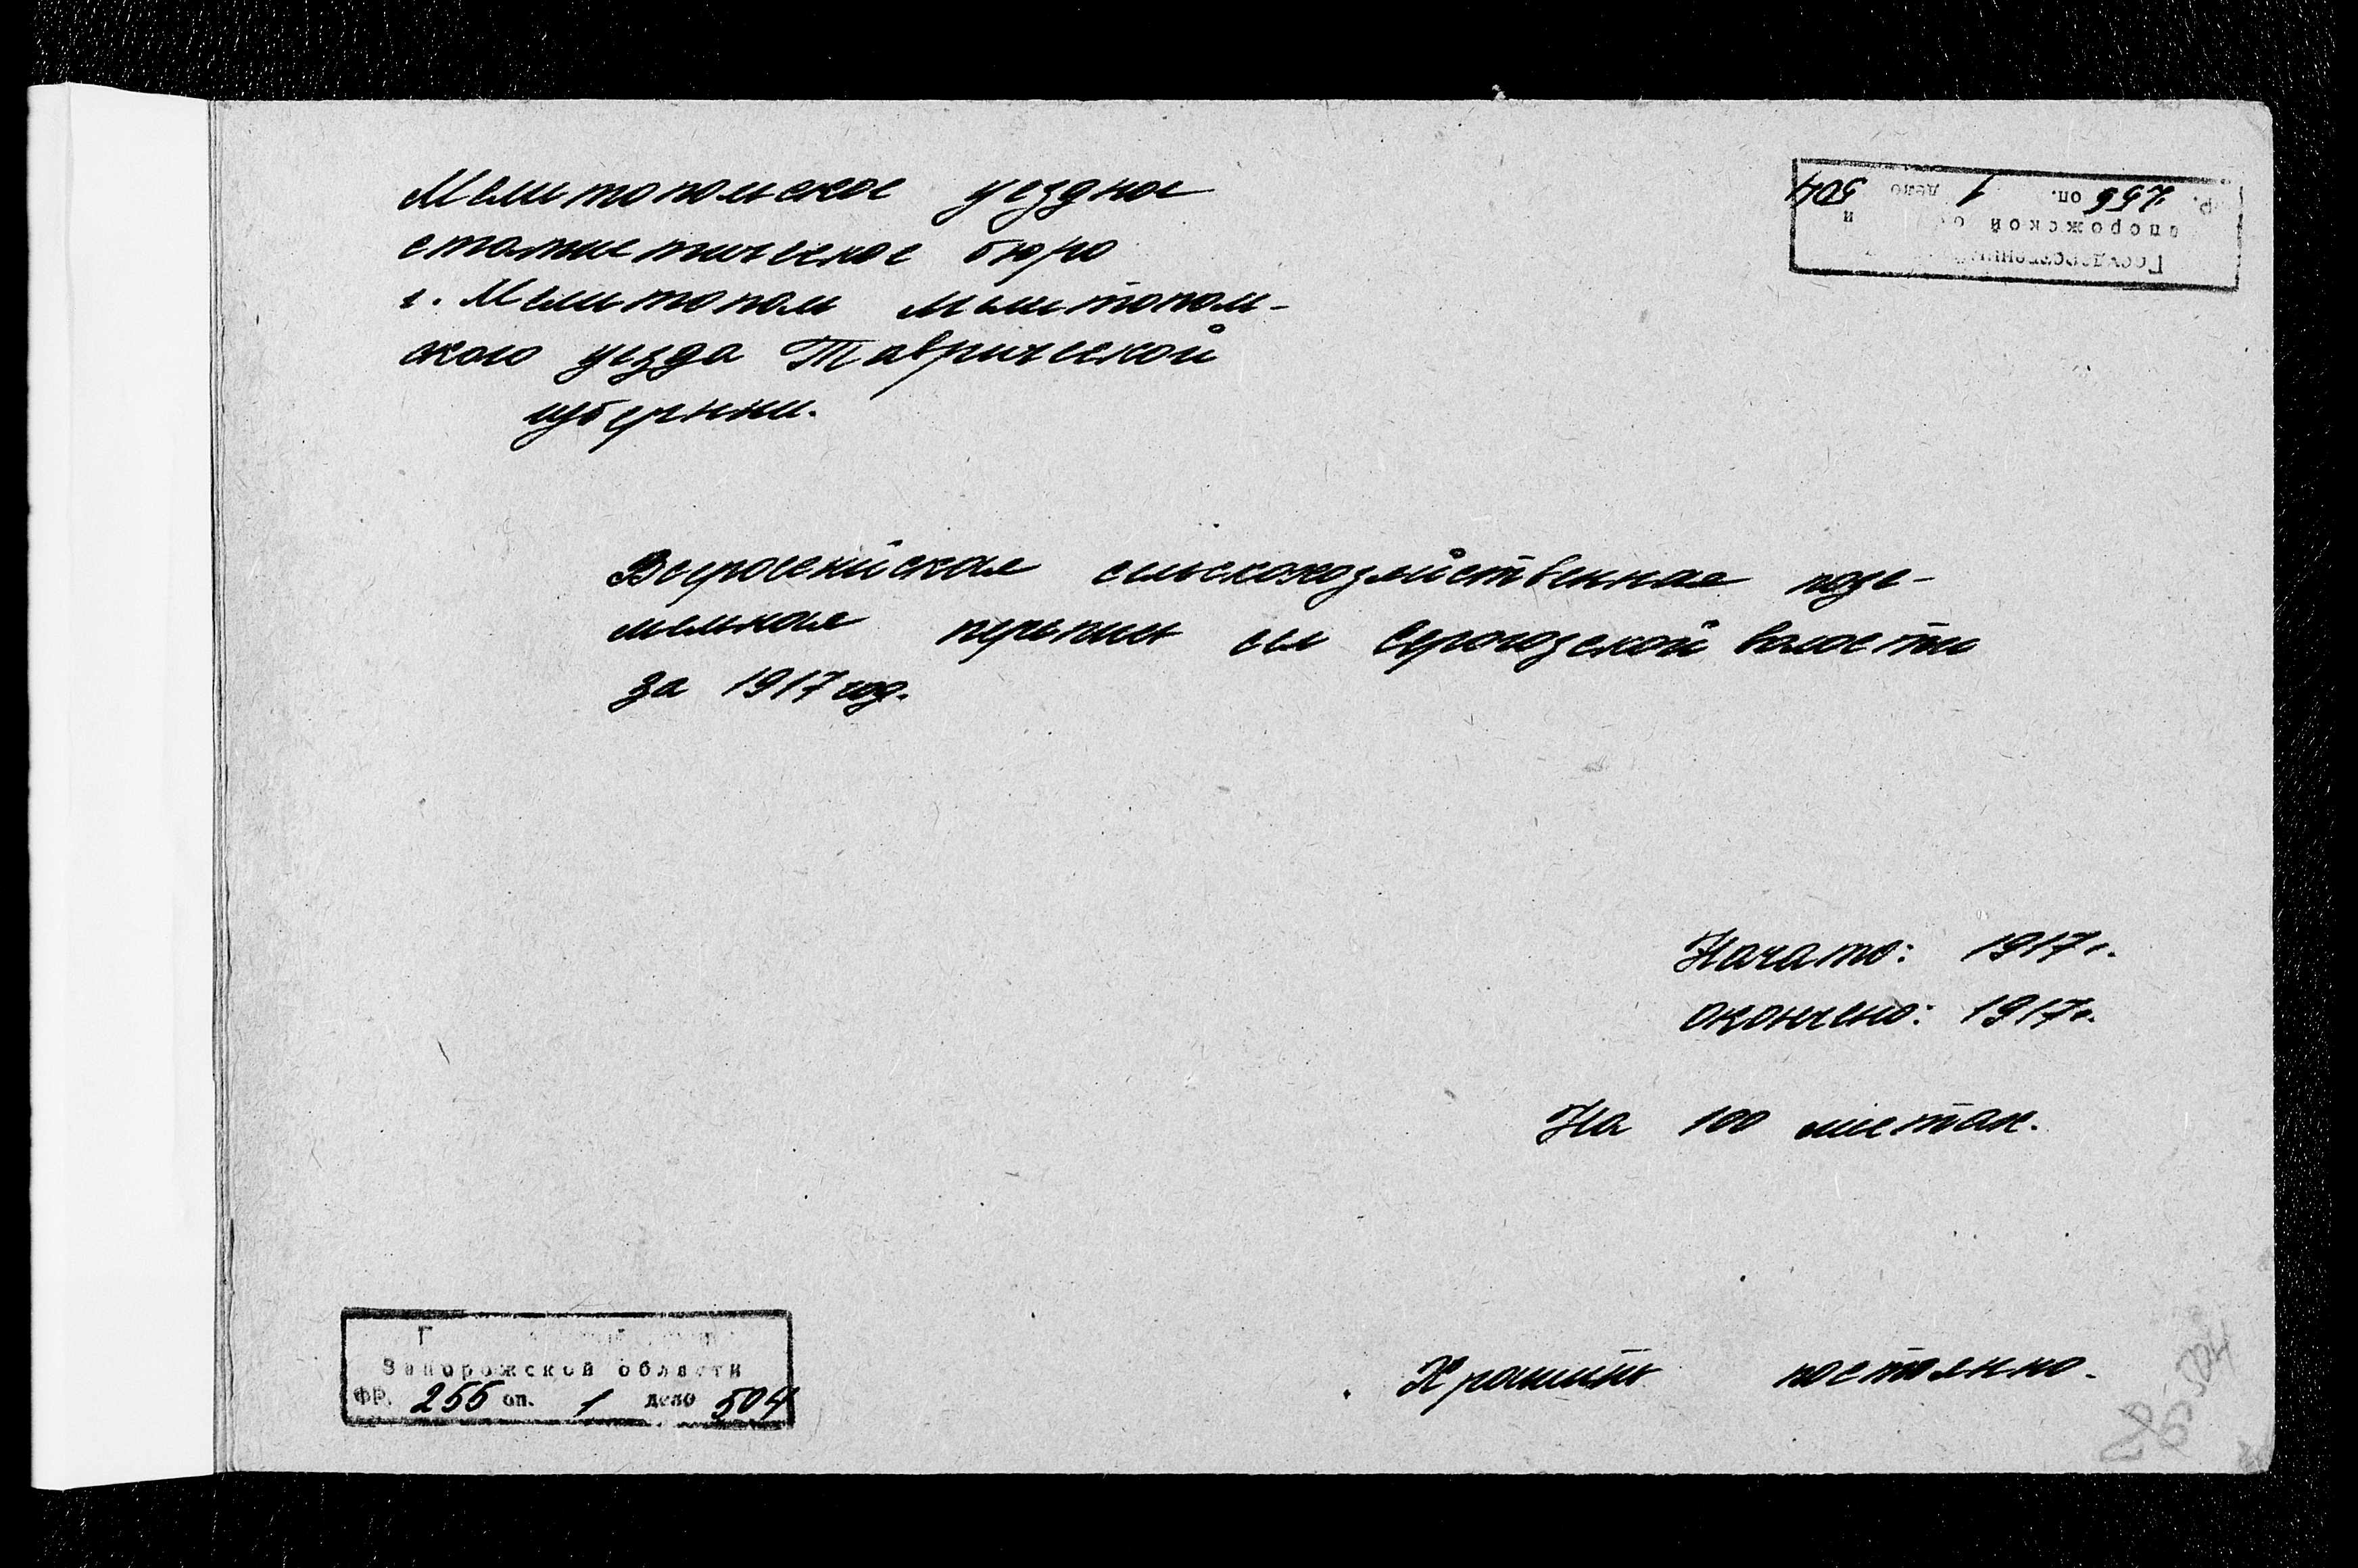 Мелитопольское уездное
статистическое бюро
г. Мелитополь мелитополь-
ского уезда Таврической
губернии.
256 оп. 1 дело 504
Всеросийская сельскохозяйственная позе-
мельная перепись сел Серогозской волости
за 1917 год.
Начато: 1917 г.
окончено: 1917 г.
На 100 листах.
Запорожской области
ФР. 256 оп. 1 дело 504
Хранить постоянно.
504